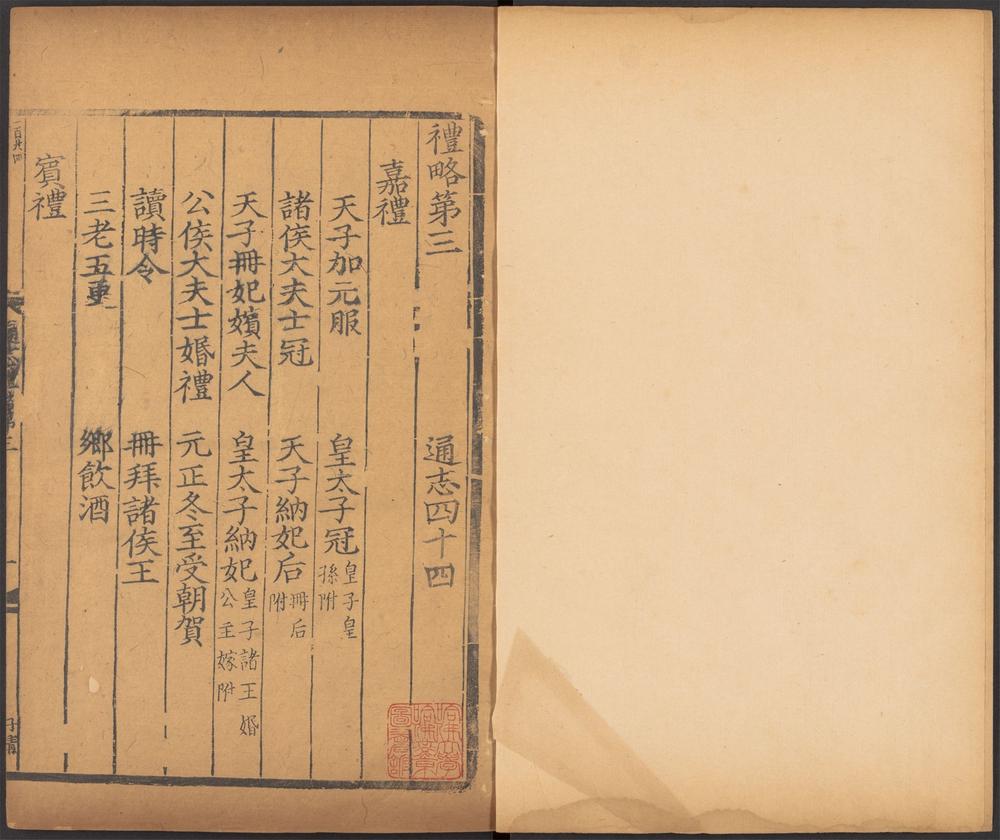 禮略第三 通志四十四
嘉禮
天子加元服 皇太子冠 皇子皇孫附
諸侯大夫士冠 天子納妃后 冊后附
天子冊妃嬪夫人 皇太子納妃 皇子諸王婚公主嫁附
公侯大夫士婚禮 元正冬至受朝賀
讀時令 冊拜諸侯王
三老五更 鄉飲酒
賓禮
哈佛大學哈佛燕京圖書館